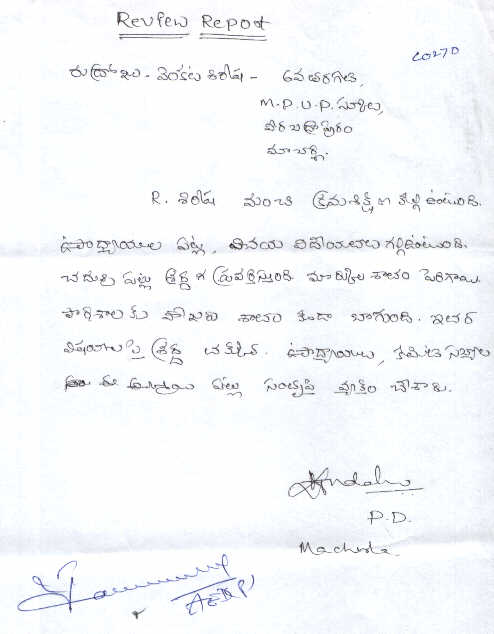 Review Report
C0270
రుద్రోజు - వెంకట శిరీష - 6వ తరగతి,
M.P.U.P. స్కూలు,
వీరభద్రాపురం
మాచర్ల.
R. శిరీష మంచి క్రమశిక్షణ కల్గి ఉంటుంది.
ఉపాధ్యాయుల పట్ల, వినయ విధేయతలు గల్గి ఉంటుంది.
చదువు పట్ల శ్రద్ధ గ ప్రవర్తిస్తుంది. మార్కుల శాతం పెరిగాయి.
పాఠశాలకు హాజరు శాతం కూడా బాగుంది. ఇతర
విషయాలపై శ్రద్ధ చూపదు. ఉపాధ్యాయులు, కమిటి సభ్యులు
ఈ పట్ల సంతృప్తి వ్యక్తం చేశారు.
P.D.
Macherla.